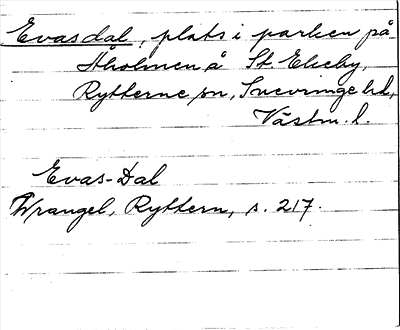 Evasdal, plats i parken på
Åholmen å St. Ekeby,
Rytterne sn, Snevringe hd,
Västm. l.
Evas-Dal
Wrangel, Ryttern, s. 217.